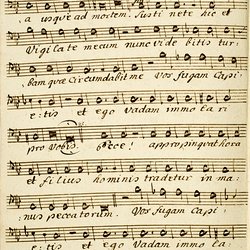 a usque ad mortem. Sustinete hic et
Vigilate mecum nunc videbitis tur:
bam quæ Circumdabit me Vos fugam Capi:
:etis et ego Vadam immolari
pro vobis. Ecce! appropinquat hora
et filius hominis tradetur in ma:
nus peccatorum. Vos fugam Capi:
:etis et ego Vadam immola: